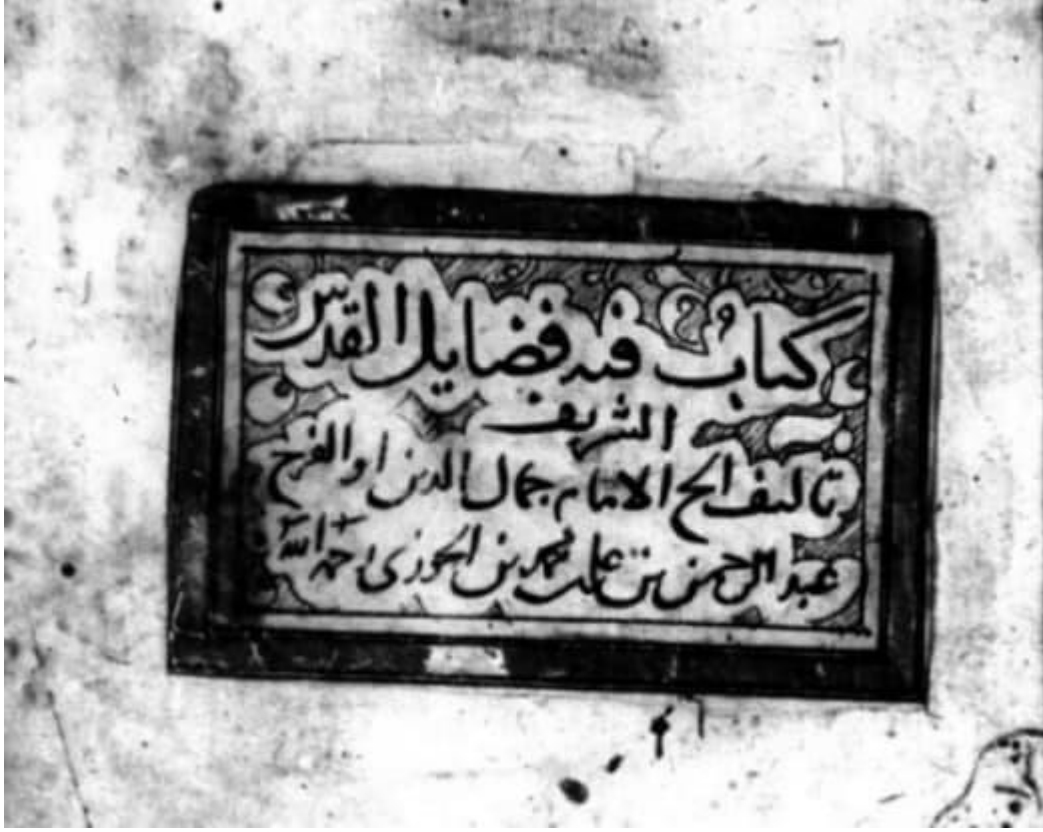 كتاب فيه فضايل القدس
الشريف
تاليف الشيخ الامام جمال الدين ابو الفرج
عبد الرحمن بن علي محمد بن الجوزي رحمه الله